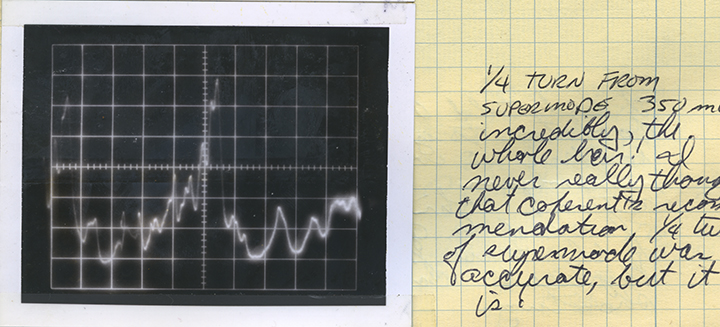 1/4 TURN FROM
SUPERMODE 350 m
incredibly, the
whole
never really though
that coherent's recom
mendation, 1/4 tu
of supermode was
accurate, but it
is!